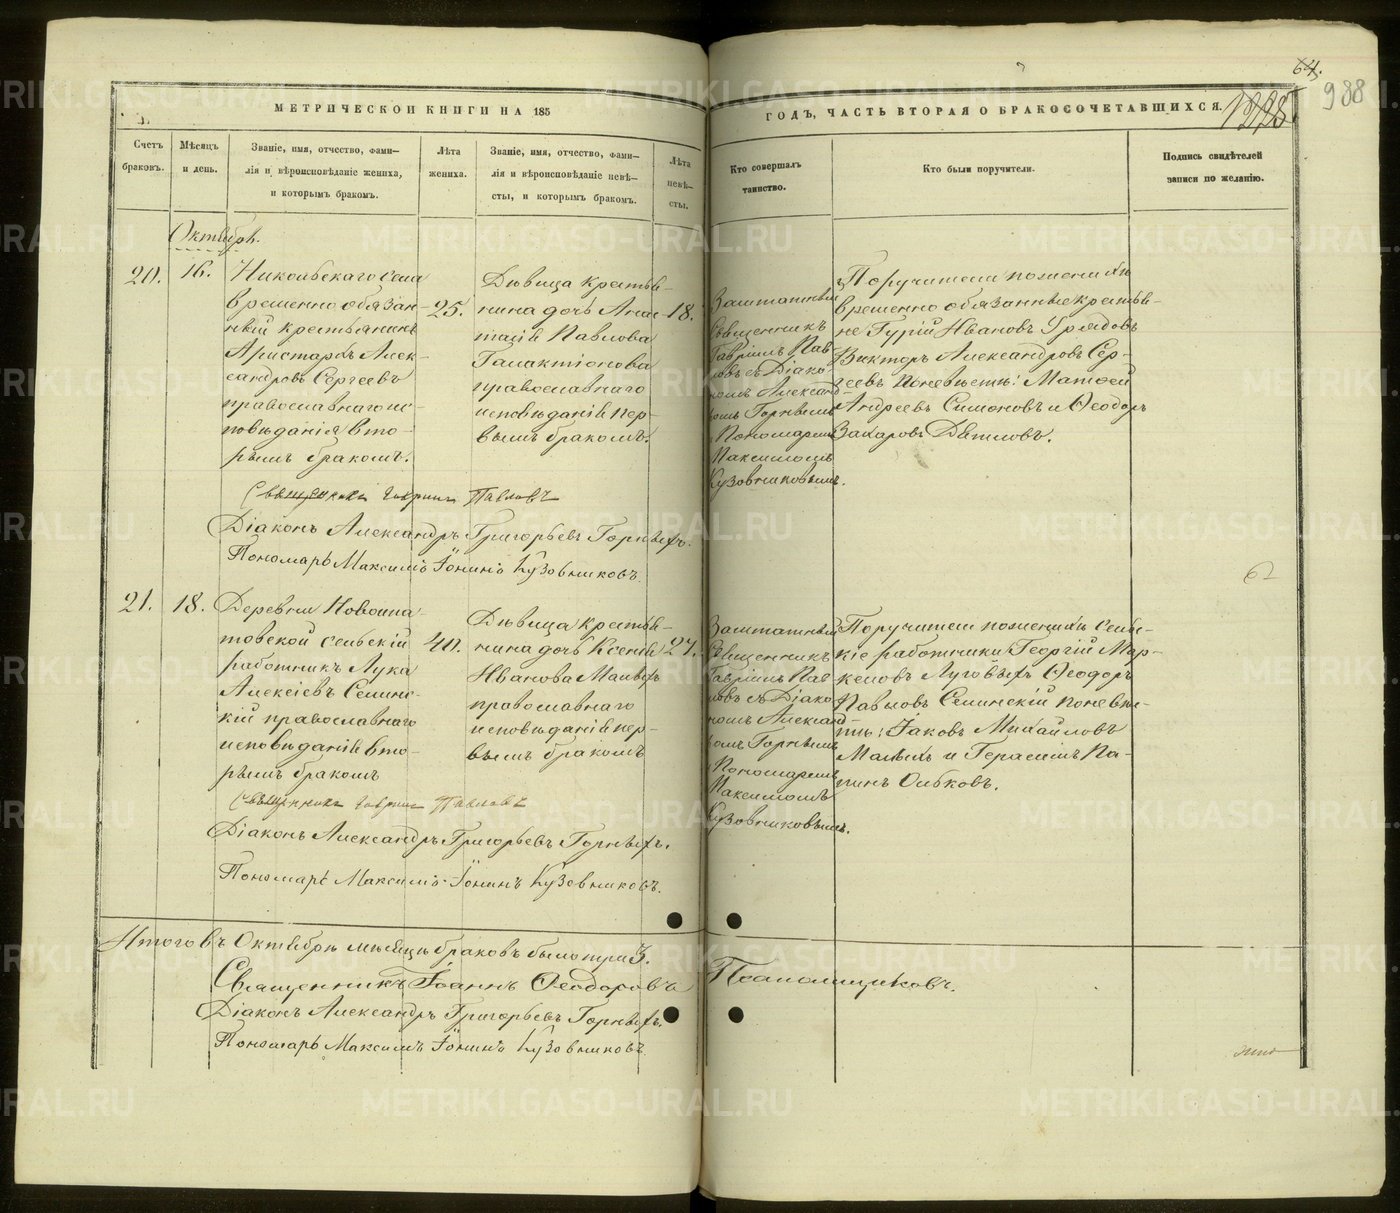 64.
988
МЕТРИЧЕСКОЙ КНИГИ НА 185
ГОДЪ, ЧАСТЬ ВТОРАЯ О БРАКОСОЧЕТАВШИХСЯ.
Счетъ
браковъ.
Мѣсяцъ
и день.
Званіе, имя, отчество, фами-
лія и вѣроисповѣданіе жениха,
и которымъ бракомъ.
Лѣта
жениха.
Званіе, имя, отчество, фами-
лія и вѣроисповѣданіе невѣ-
сты, и которымъ бракомъ.
Лѣта
невѣ-
сты.
Кто совершалъ
таинство.
Кто были поручители.
Подпись свидѣтелей
записи по желанію.
Октябрь.
20.
16.
Никольскаго села
временно обязан-
ный крестьянинъ
Аристархъ Алек-
сандровъ Сергеевъ
православнаго ис-
повѣданія вто-
рымъ бракомъ.
25.
Дѣвица крестья-
нина дочь Анас-
тасія Павлова
Галактіонова
православнаго
исповѣданія пер-
вымъ бракомъ.
18.
Заштатный
Священникъ
Гавріилъ Пав-
ловъ съ Діако-
номъ Александ-
ромъ Горныхъ
и Пономаремъ
Максимомъ
Кузовниковымъ.
Поручители по женихѣ
временно обязанные крестья-
не Гурій Ивановъ Урядовъ
Викторъ Александровъ Сер-
геевъ по невѣстѣ: Матвей
Андреевъ Симоновъ и Ѳеодоръ
Захаровъ Дятловъ.
Священникъ Гавріилъ Павловъ
Діаконъ Александръ Григорьевъ Горныхъ.
Пономарь Максимъ Іонинъ Кузовниковъ.
21.
18.
Деревни Новоипа-
товской сельскій
работникъ Лука
Алексѣевъ Селинс-
кій православнаго
исповѣданія вто-
рымъ бракомъ
40.
Дѣвица крестья-
нина дочь Ксенія
Иванова Малыхъ
православнаго
исповѣданія пер-
вымъ бракомъ
27.
Заштатный
Священникъ
Гавріилъ Пав-
ловъ съ Діако-
номъ Александ-
ромъ Горныхъ
и Пономаремъ
Максимомъ
Кузовниковымъ.
Поручители по женихѣ сельс-
кіе работники Георгій Мар-
келовъ Луговыхъ Ѳеодоръ
Павловъ Селинскій по невѣс-
тѣ: Іаковъ Михайловъ
Малыхъ и Герасимъ
62
Священникъ Гавріилъ Павловъ
Діаконъ Александръ Григорьевъ Горныхъ.
Пономарь Максимъ Іонинъ Кузовниковъ.
Итого въ Октябрѣ мѣсяцѣ браковъ было три 3.
Священникъ Іоаннъ Ѳеодоровъ Топоищиковъ.
Діаконъ Александръ Григорьевъ Горныхъ.
Пономарь Максимъ Іонинъ Кузовниковъ
METRIKI.GASO-URAL.RU